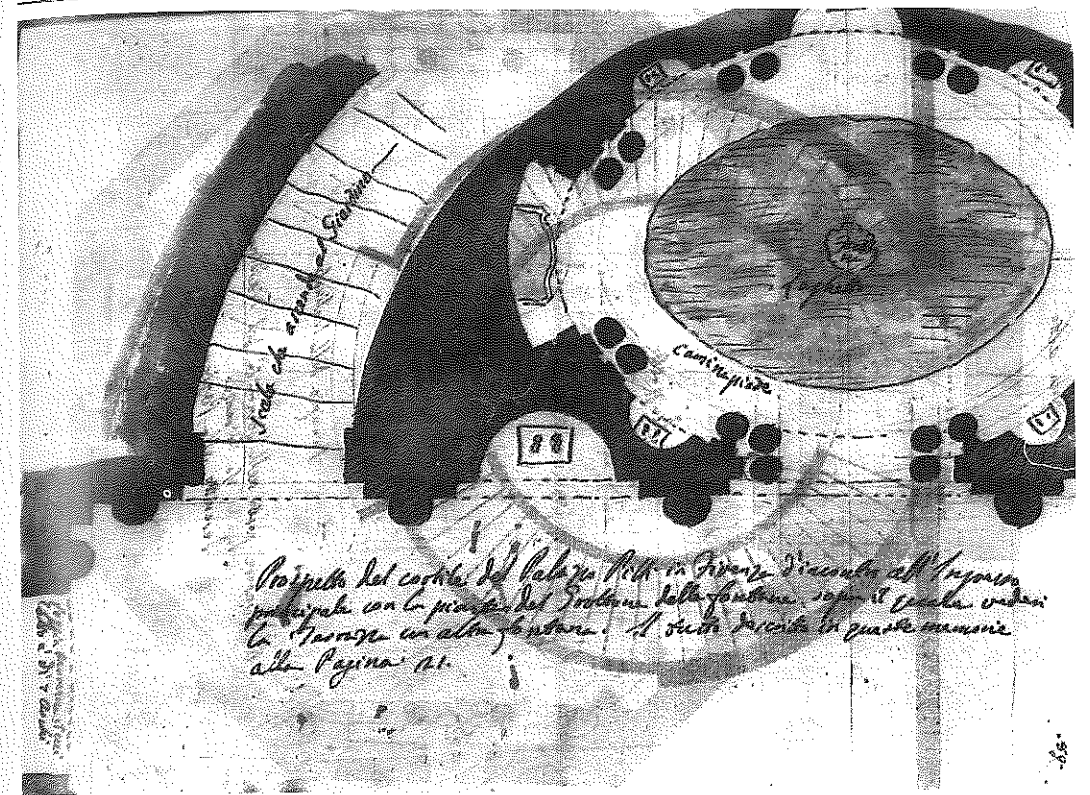 Scala che ascende al Giardino
Laghetto
Caminapiede
Prospetto del cortile del Palazzo Pitti in Firenze d'incontro all'Ingresso
principale con la pianta del Grottone della fontana, sopra il quale vedesi
la Terrazza con altra fontana. Il tutto descritto in queste memorie
alla Pagina 21.